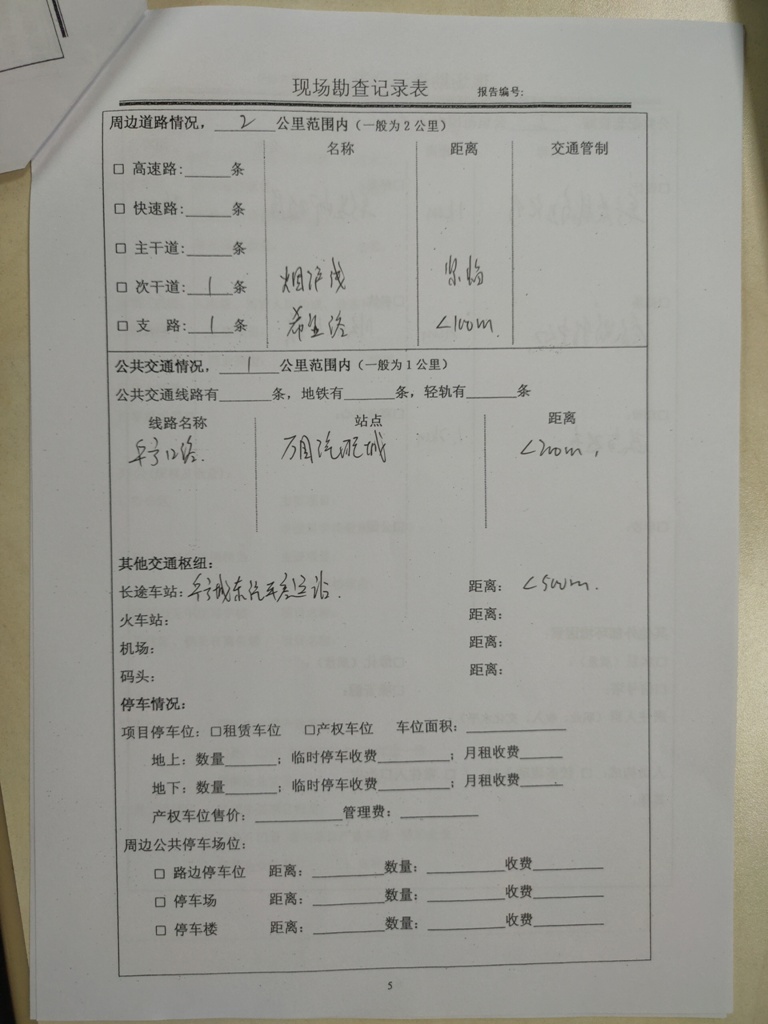 现场勘查记录表 报告编号:
周边道路情况，2公里范围内（一般为2公里）
名称 距离 交通管制
□ 高速路:______条
□ 快速路:______条
□ 主干道:______条
□ 次干道:1条 烟沪线 紧临
□ 支 路:1条 路 <100m.
公共交通情况，1公里范围内（一般为1公里）
公共交通线路有______条，地铁有______条，轻轨有______条
线路名称 站点 距离
阜宁12路. 万国汽配城 <200m，
其他交通枢纽：
长途车站：阜宁城东汽车客运站. 距离： <500m.
火车站： 距离：
机场： 距离：
码头： 距离：
停车情况：
项目停车位：□租赁车位 □产权车位 车位面积：______
地上：数量______；临时停车收费______；月租收费______
地下：数量______；临时停车收费______；月租收费______
产权车位售价：______管理费：______
周边公共停车场位：
□ 路边停车位 距离：______数量：______收费______
□ 停车场 距离：______数量：______收费______
□ 停车楼 距离：______数量：______收费______
5